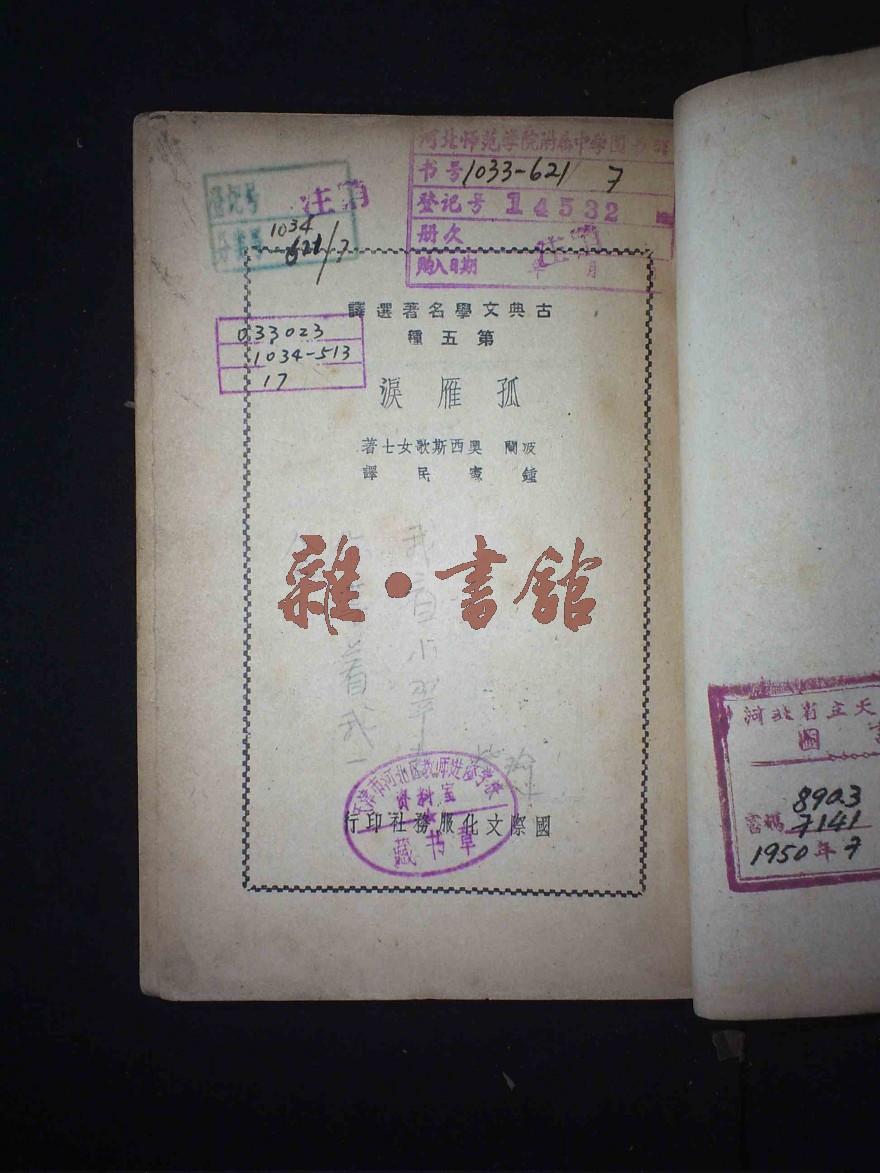 河北师范学院附属中学图
书号 1033-621 7
登记号 14532
册次 注销
购入日期 年 月
登记号
分类号 1034 621/7
注销
033023
1034-513
17
古典文學名著選譯
第五種
孤雁淚
波蘭 奧西斯歌女士著
鍾憲民譯
我
着
我
一
雜·書館
天津市河北区教师进修学校
资料室
藏书章
國際文化服務社印行
河北省立天
圖 書
8903
書碼 7141
1950年7